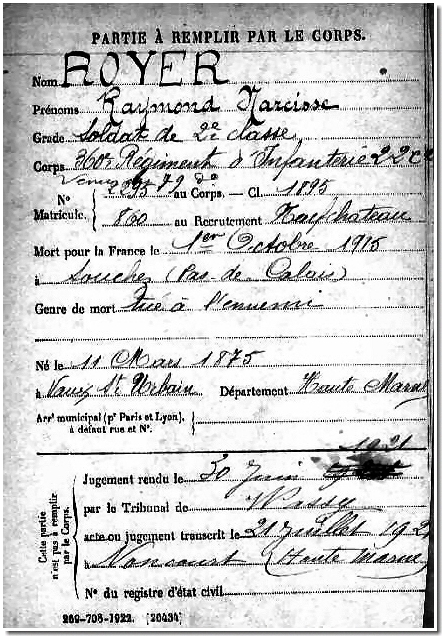 PARTIE À REMPLIR PAR LE CORPS.
Nom ROYER
Prénoms Raymond Narcisse
Grade Soldat de 2e classe
Corps 360e Régiment d'Infanterie 22 Cie
N° 2395 au Corps. — Cl. 1895
Matricule. 860 au Recrutement Neufchateau
Mort pour la France le 1er Octobre 1915
à Souchez (Pas-de-Calais)
Genre de mort tué à l'ennemi
Né le 11 Mars 1875
à Vaux St Urbain Département Haute Marne
Arrt municipal (pr Paris et Lyon), à défaut rue et N°.
1921
Cette partie n'est pas à remplir par le Corps.
Jugement rendu le 30 Juin
par le Tribunal de Wassy
acte ou jugement transcrit le 21 Juillet 1921
à Noncourt (Haute Marne)
N° du registre d'état civil
269-708-1922. [26434]